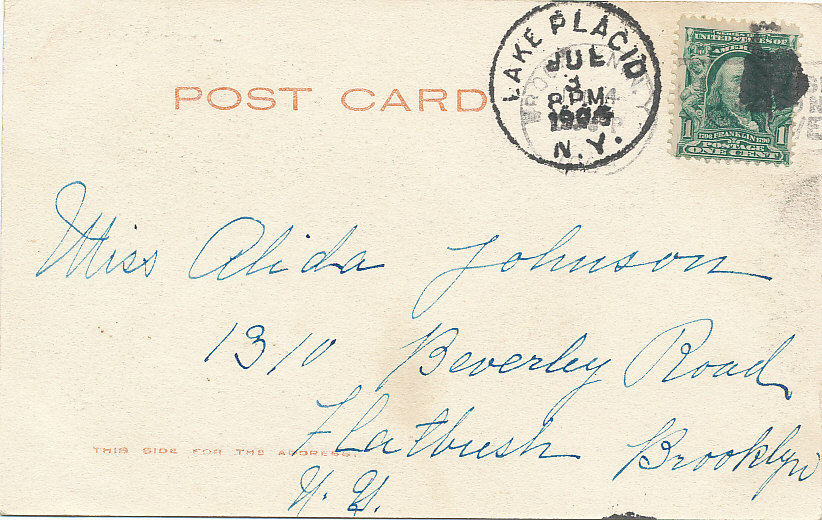 POST CARD
LAKE PLACID
JUL
3
8 PM
N.Y.
SERIES OF 1902
UNITED STATES OF
AMERICA
1 FRANKLIN 1
POSTAGE
ONE CENT
Miss Alida Johnson
1310 Beverley Road
Flatbush Brooklyn
THIS SIDE FOR THE ADDRESS.
N. Y.